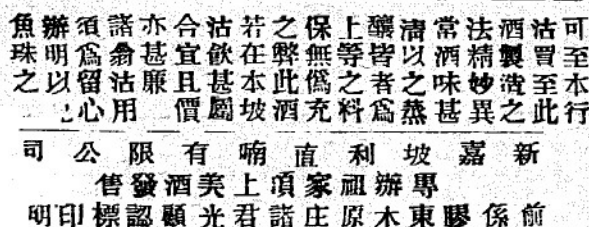 可至本行
沽買至此
酒製造之
法精妙異
常酒味甚
清以之蒸
釀皆者爲
上等之料
保無僞充
之弊此酒
若在本坡
沽飲甚屬
合宜且價
亦甚廉
諸翁沽用
須爲留心
辦明以
魚珠之
新嘉坡利直喃有限公司
專辦祖家頂上美酒發售
前係膠東木原庄諸君光顧認標印明